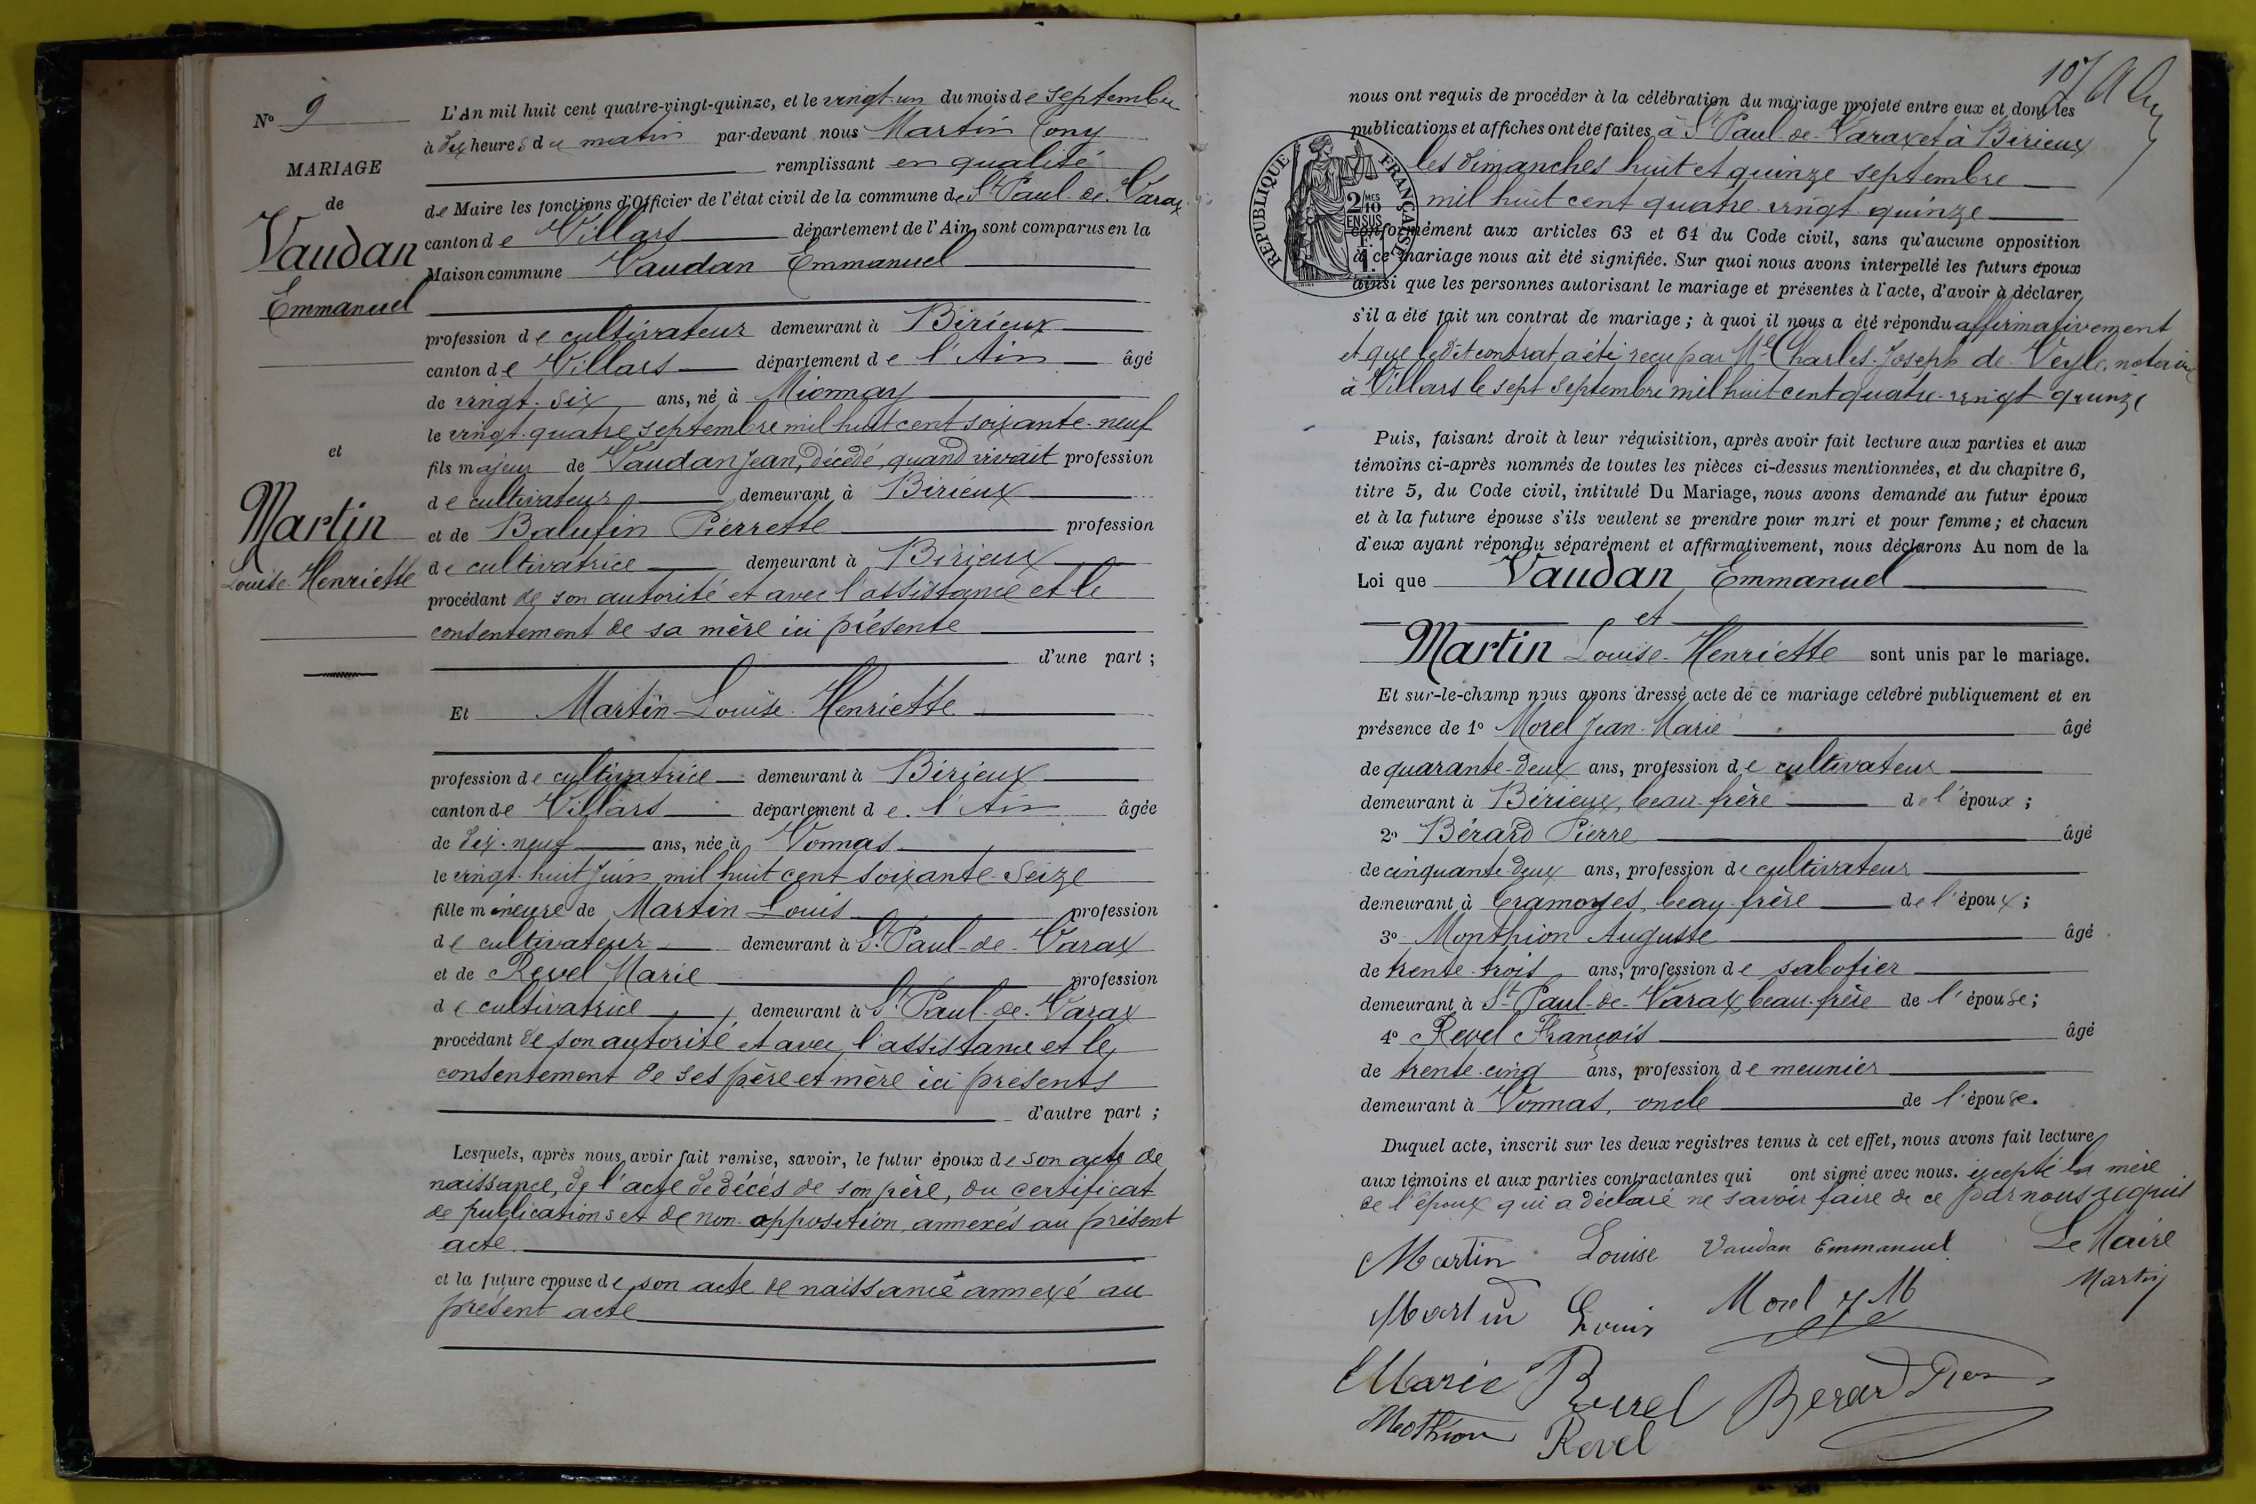 N° 9
MARIAGE
de
Vaudan
Emmanuel
et
Martin
Louise-Henriette
L'An mil huit cent quatre-vingt-quinze, et le vingt-un du mois de septembre
à dix heures du matin par-devant nous Martin Tony
remplissant en qualité
de Maire les fonctions d'Officier de l'état civil de la commune de St Paul-de-Varax
canton de Villars département de l'Ain, sont comparus en la
Maison commune Vaudan Emmanuel
profession de cultivateur demeurant à Birieux
canton de Villars département de l'Ain âgé
de vingt-six ans, né à Mionnay
le vingt-quatre septembre mil huit cent soixante-neuf
fils majeur de Vaudan Jean, décédé, quand vivait profession
de cultivateur demeurant à Birieux
et de Balufin Pierrette profession
de cultivatrice demeurant à Birieux
procédant de son autorité et avec l'assistance et le
consentement de sa mère ici présente
d'une part ;
Et Martin Louise-Henriette
profession de cultivatrice demeurant à Birieux
canton de Villars département de l'Ain âgée
de dix-neuf ans, née à Vonnas
le vingt-huit juin mil huit cent soixante-seize
fille mineure de Martin Louis profession
de cultivateur demeurant à St Paul-de-Varax
et de Revel Marie profession
de cultivatrice demeurant à St Paul-de-Varax
procédant de son autorité et avec l'assistance et le
consentement de ses père et mère ici présents
d'autre part ;
Lesquels, après nous avoir fait remise, savoir, le futur époux de son acte de
naissance, de l'acte de décés de son père, du certificat
de publications et de non-opposition, annexés au présent
acte
et la future épouse de son acte de naissance annexé au
présent acte
107
nous ont requis de procéder à la célébration du mariage projeté entre eux et dont les
publications et affiches ont été faites à St Paul-de-Varax et à Birieux
les dimanches huit et quinze septembre
mil huit cent quatre-vingt-quinze
RÉPUBLIQUE FRANÇAISE
2/10 MES
EN SUS
1 F.
conformément aux articles 63 et 64 du Code civil, sans qu'aucune opposition
à ce mariage nous ait été signifiée. Sur quoi nous avons interpellé les futurs époux
ainsi que les personnes autorisant le mariage et présentes à l'acte, d'avoir à déclarer
s'il a été fait un contrat de mariage ; à quoi il nous a été répondu affirmativement
et que ledit contrat a été reçu par Me Charles-Joseph de Veyle, notaire
à Villars le sept septembre mil huit cent quatre-vingt-quinze
Puis, faisant droit à leur réquisition, après avoir fait lecture aux parties et aux
témoins ci-après nommés de toutes les pièces ci-dessus mentionnées, et du chapitre 6,
titre 5, du Code civil, intitulé Du Mariage, nous avons demandé au futur époux
et à la future épouse s'ils veulent se prendre pour mari et pour femme ; et chacun
d'eux ayant répondu séparément et affirmativement, nous déclarons Au nom de la
Loi que Vaudan Emmanuel
et
Martin Louise-Henriette sont unis par le mariage.
Et sur-le-champ nous avons dressé acte de ce mariage célébré publiquement et en
présence de 1° Morel Jean-Marie âgé
de quarante-deux ans, profession de cultivateur
demeurant à Birieux, beau-frère de l'époux ;
2° Bérard Pierre âgé
de cinquante-deux ans, profession de cultivateur
demeurant à Tramoyes, beau-frère de l'époux ;
3° Monthion Auguste âgé
de trente-trois ans, profession de sabotier
demeurant à St Paul-de-Varax beau-frère de l'épouse ;
4° Revel François âgé
de trente-cinq ans, profession de meunier
demeurant à Vonnas, oncle de l'épouse.
Duquel acte, inscrit sur les deux registres tenus à cet effet, nous avons fait lecture
aux témoins et aux parties contractantes qui ont signé avec nous. excepté la mère
de l'époux qui a déclaré ne savoir faire de ce par nous requis
Martin Louise Vaudan Emmanuel Le Maire
Martin
Martin Louis Morel J M
Marie Revel Berard
Mothion Revel